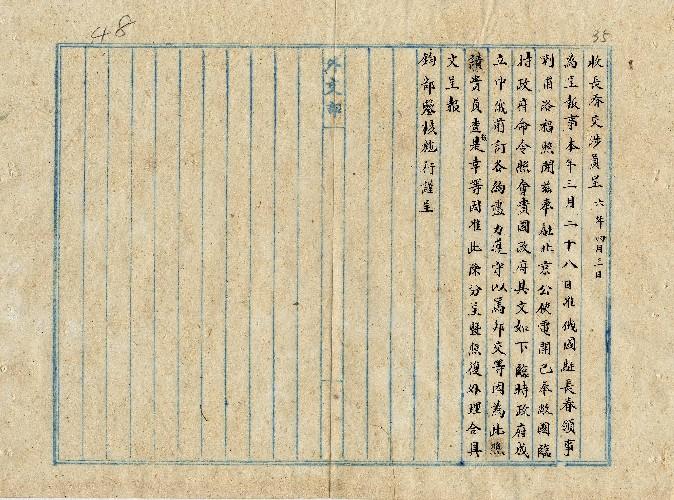 48
35
收長春交涉員呈 六年四月三日
為呈報事本年三月二十八日准俄國駐長春領事
列甫洛福照開茲奉駐北京公使電開已奉敝國臨
時政府命令照會貴國政府其文如下臨時政府成
立中俄前訂各約盡力遵守以篤邦交等因為此照
請貴員查照是幸等因准此除分呈暨照復外理合具
文呈報
鈞部鑒核施行謹呈
外交部